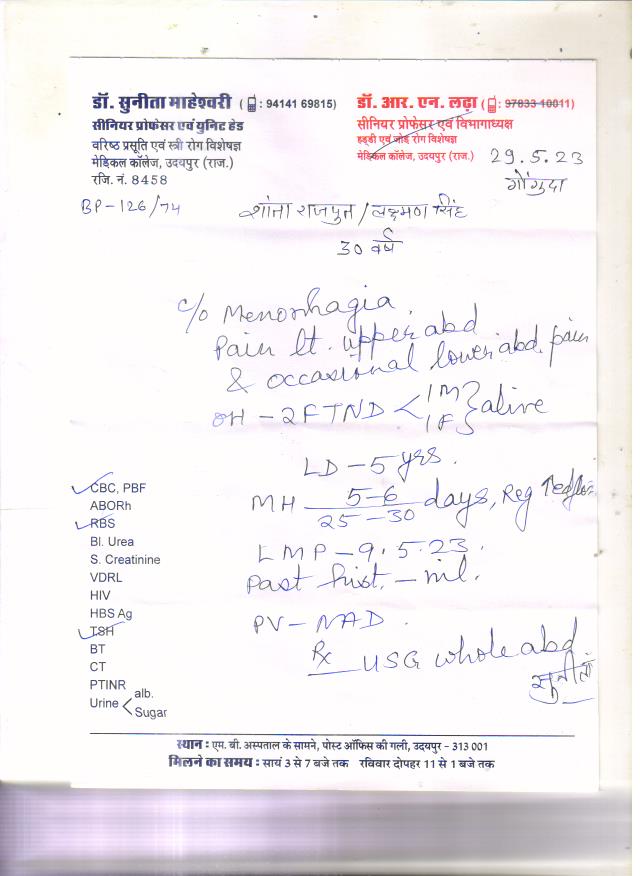 डॉ. सुनीता माहेश्वरी ( : 94141 69815)
सीनियर प्रोफेसर एवं यूनिट हेड
वरिष्ठ प्रसूति एवं स्त्री रोग विशेषज्ञ
मेडिकल कॉलेज, उदयपुर (राज.)
रजि. नं. 8458
डॉ. आर. एन. लढ़ा ( : 97833 10011)
सीनियर प्रोफेसर एवं विभागाध्यक्ष
हड्डी एवं जोड़ रोग विशेषज्ञ
मेडिकल कॉलेज, उदयपुर (राज.)
29.5.23
गोगुंदा
BP-126/74
शांता राजपुत / लक्ष्मण सिंह
30 वर्ष
c/o Menorrhagia.
Pain lt. upper abd
& occasional lower abd. pain
OH - 2FTND < 1M 1F } alive
LD - 5 yrs.
MH 5-6/25-30 days, Reg ↑ed flow
LMP - 9.5.23.
Past hist. - nil.
PV - NAD.
Rx USG whole abd
सुनीता
CBC, PBF
ABORh
RBS
Bl. Urea
S. Creatinine
VDRL
HIV
HBS Ag
TSH
BT
CT
PTINR
Urine < alb.
Sugar
स्थान : एम. बी. अस्पताल के सामने, पोस्ट ऑफिस की गली, उदयपुर - 313 001
मिलने का समय : सायं 3 से 7 बजे तक रविवार दोपहर 11 से 1 बजे तक